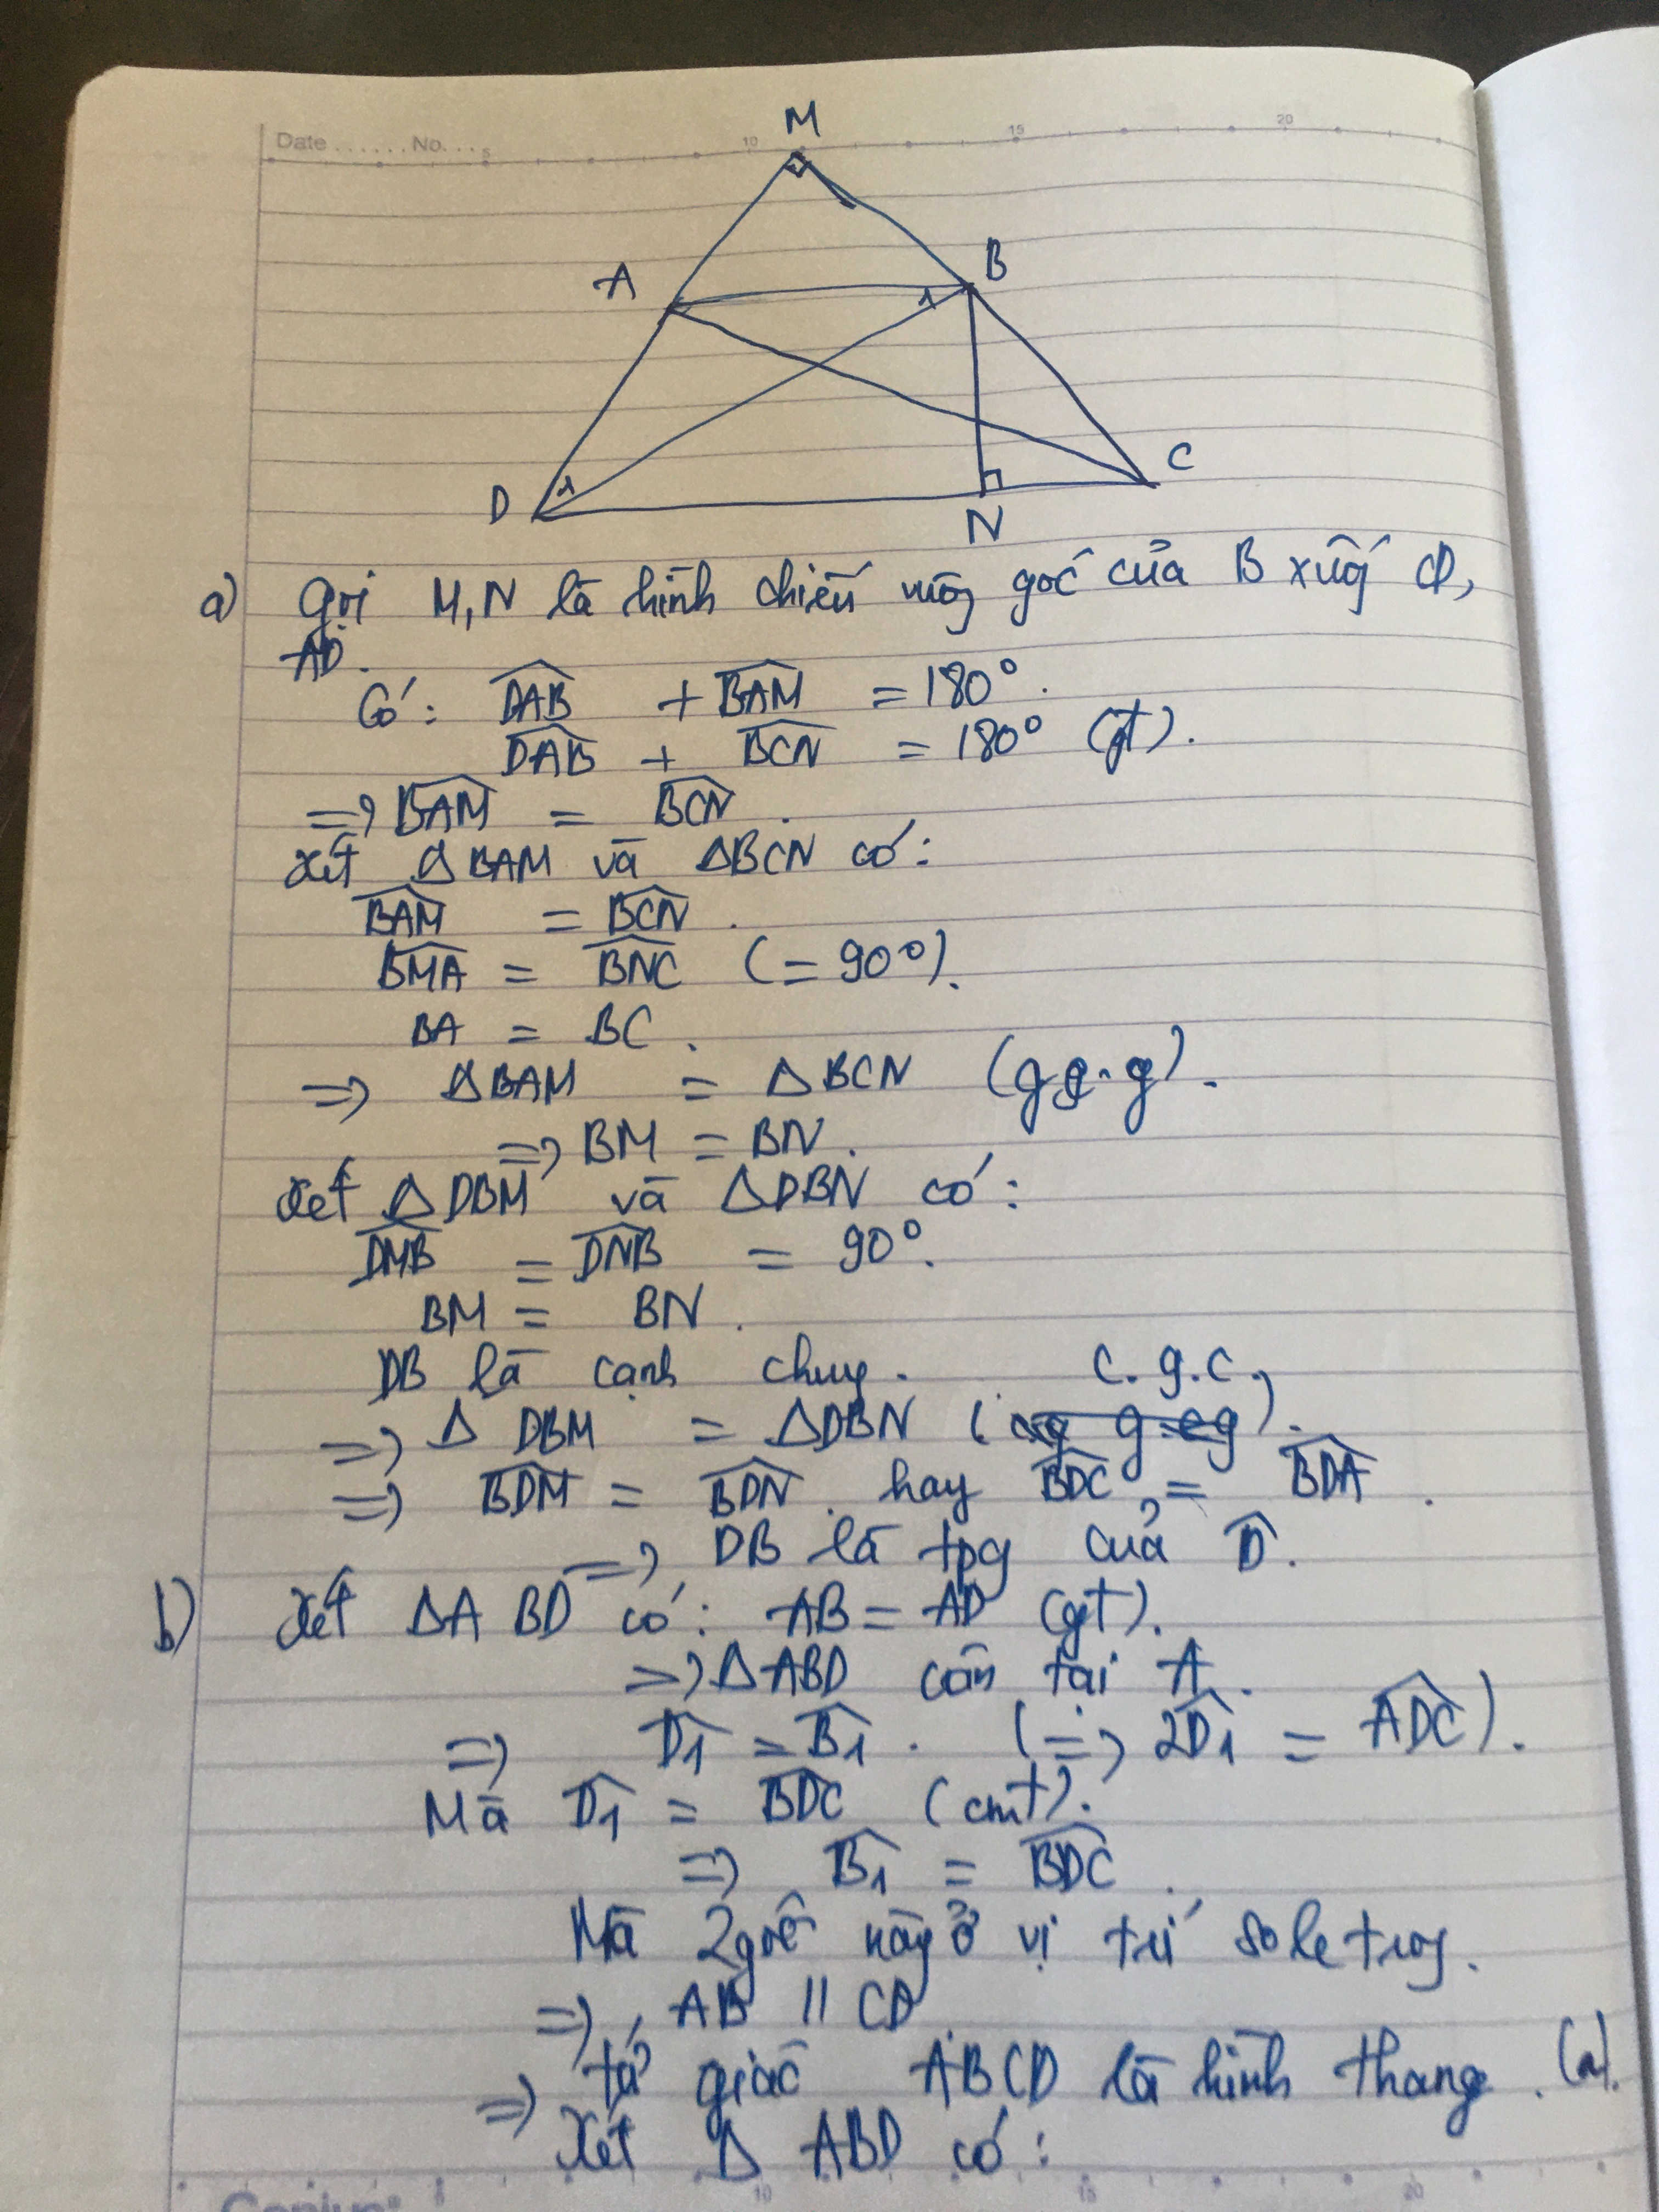 Date ...... No. ... 5 10 15 20
M
A B
1
1
D N C
a) Gọi M, N là hình chiếu vuông góc của B xuống CD,
AD.
Có: DAB + BAM = 180°.
DAB + BCN = 180° (gt).
=> BAM = BCN.
Xét ΔBAM và ΔBCN có:
BAM = BCN.
BMA = BNC (= 90°).
BA = BC.
=> ΔBAM = ΔBCN (g.g.g).
=> BM = BN.
Xét ΔDBM và ΔDBN có:
DMB = DNB = 90°.
BM = BN.
DB là cạnh chung. c.g.c.
=> Δ DBM = ΔDBN ( ).
=> BDM = BDN. hay BDC = BDA.
=> DB là tpg của D.
b) Xét ΔABD có: AB = AD (gt).
=> ΔABD cân tại A.
=> D1 = B1. (=> 2D1 = ADC).
Mà D1 = BDC (cmt).
=> B1 = BDC.
Mà 2 góc này ở vị trí so le trong.
=> AB // CD
=> tứ giác ABCD là hình thang. (1).
Xét Δ ABD có:
10 15 20